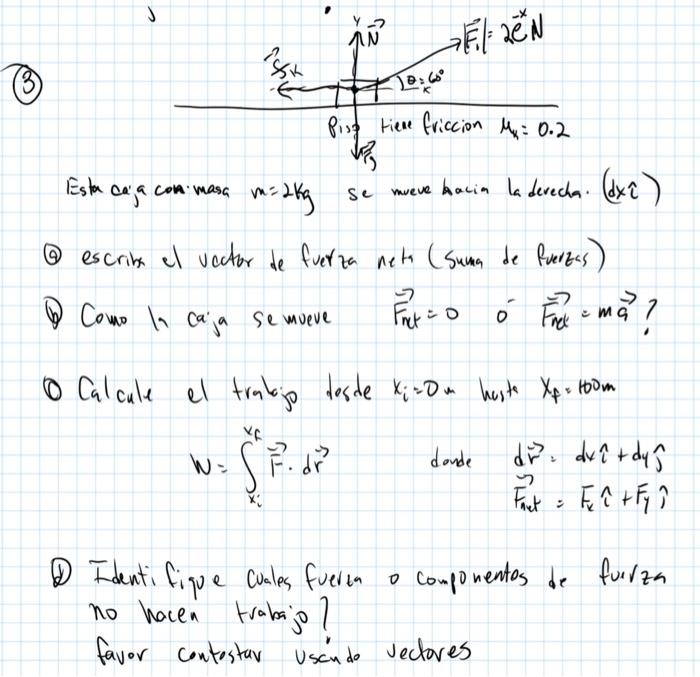 ③
y
N⃗
|F⃗₁| = 2e⁻ˣ N
f⃗sk
θ = 60°
x
Piso tiene friccion μₖ = 0.2
F⃗g
Esta caja con masa m = 2Kg se mueve hacia la derecha. (dx î)
ⓐ escriba el vector de fuerza neta (suma de fuerzas)
ⓑ Como la caja se mueve F⃗net = 0 ó F⃗net = m a⃗ ?
Calcule el trabajo desde xᵢ = 0 m hasta x_f = 100m
W = ∫ₓᵢ^x_f F⃗ · dr⃗ donde dr⃗ = dx î + dy ĵ
F⃗net = Fₓ î + Fy ĵ
ⓓ Identifique cuales fuerza o componentos de fuerza
no hacen trabajo?
favor contestar usando vectores